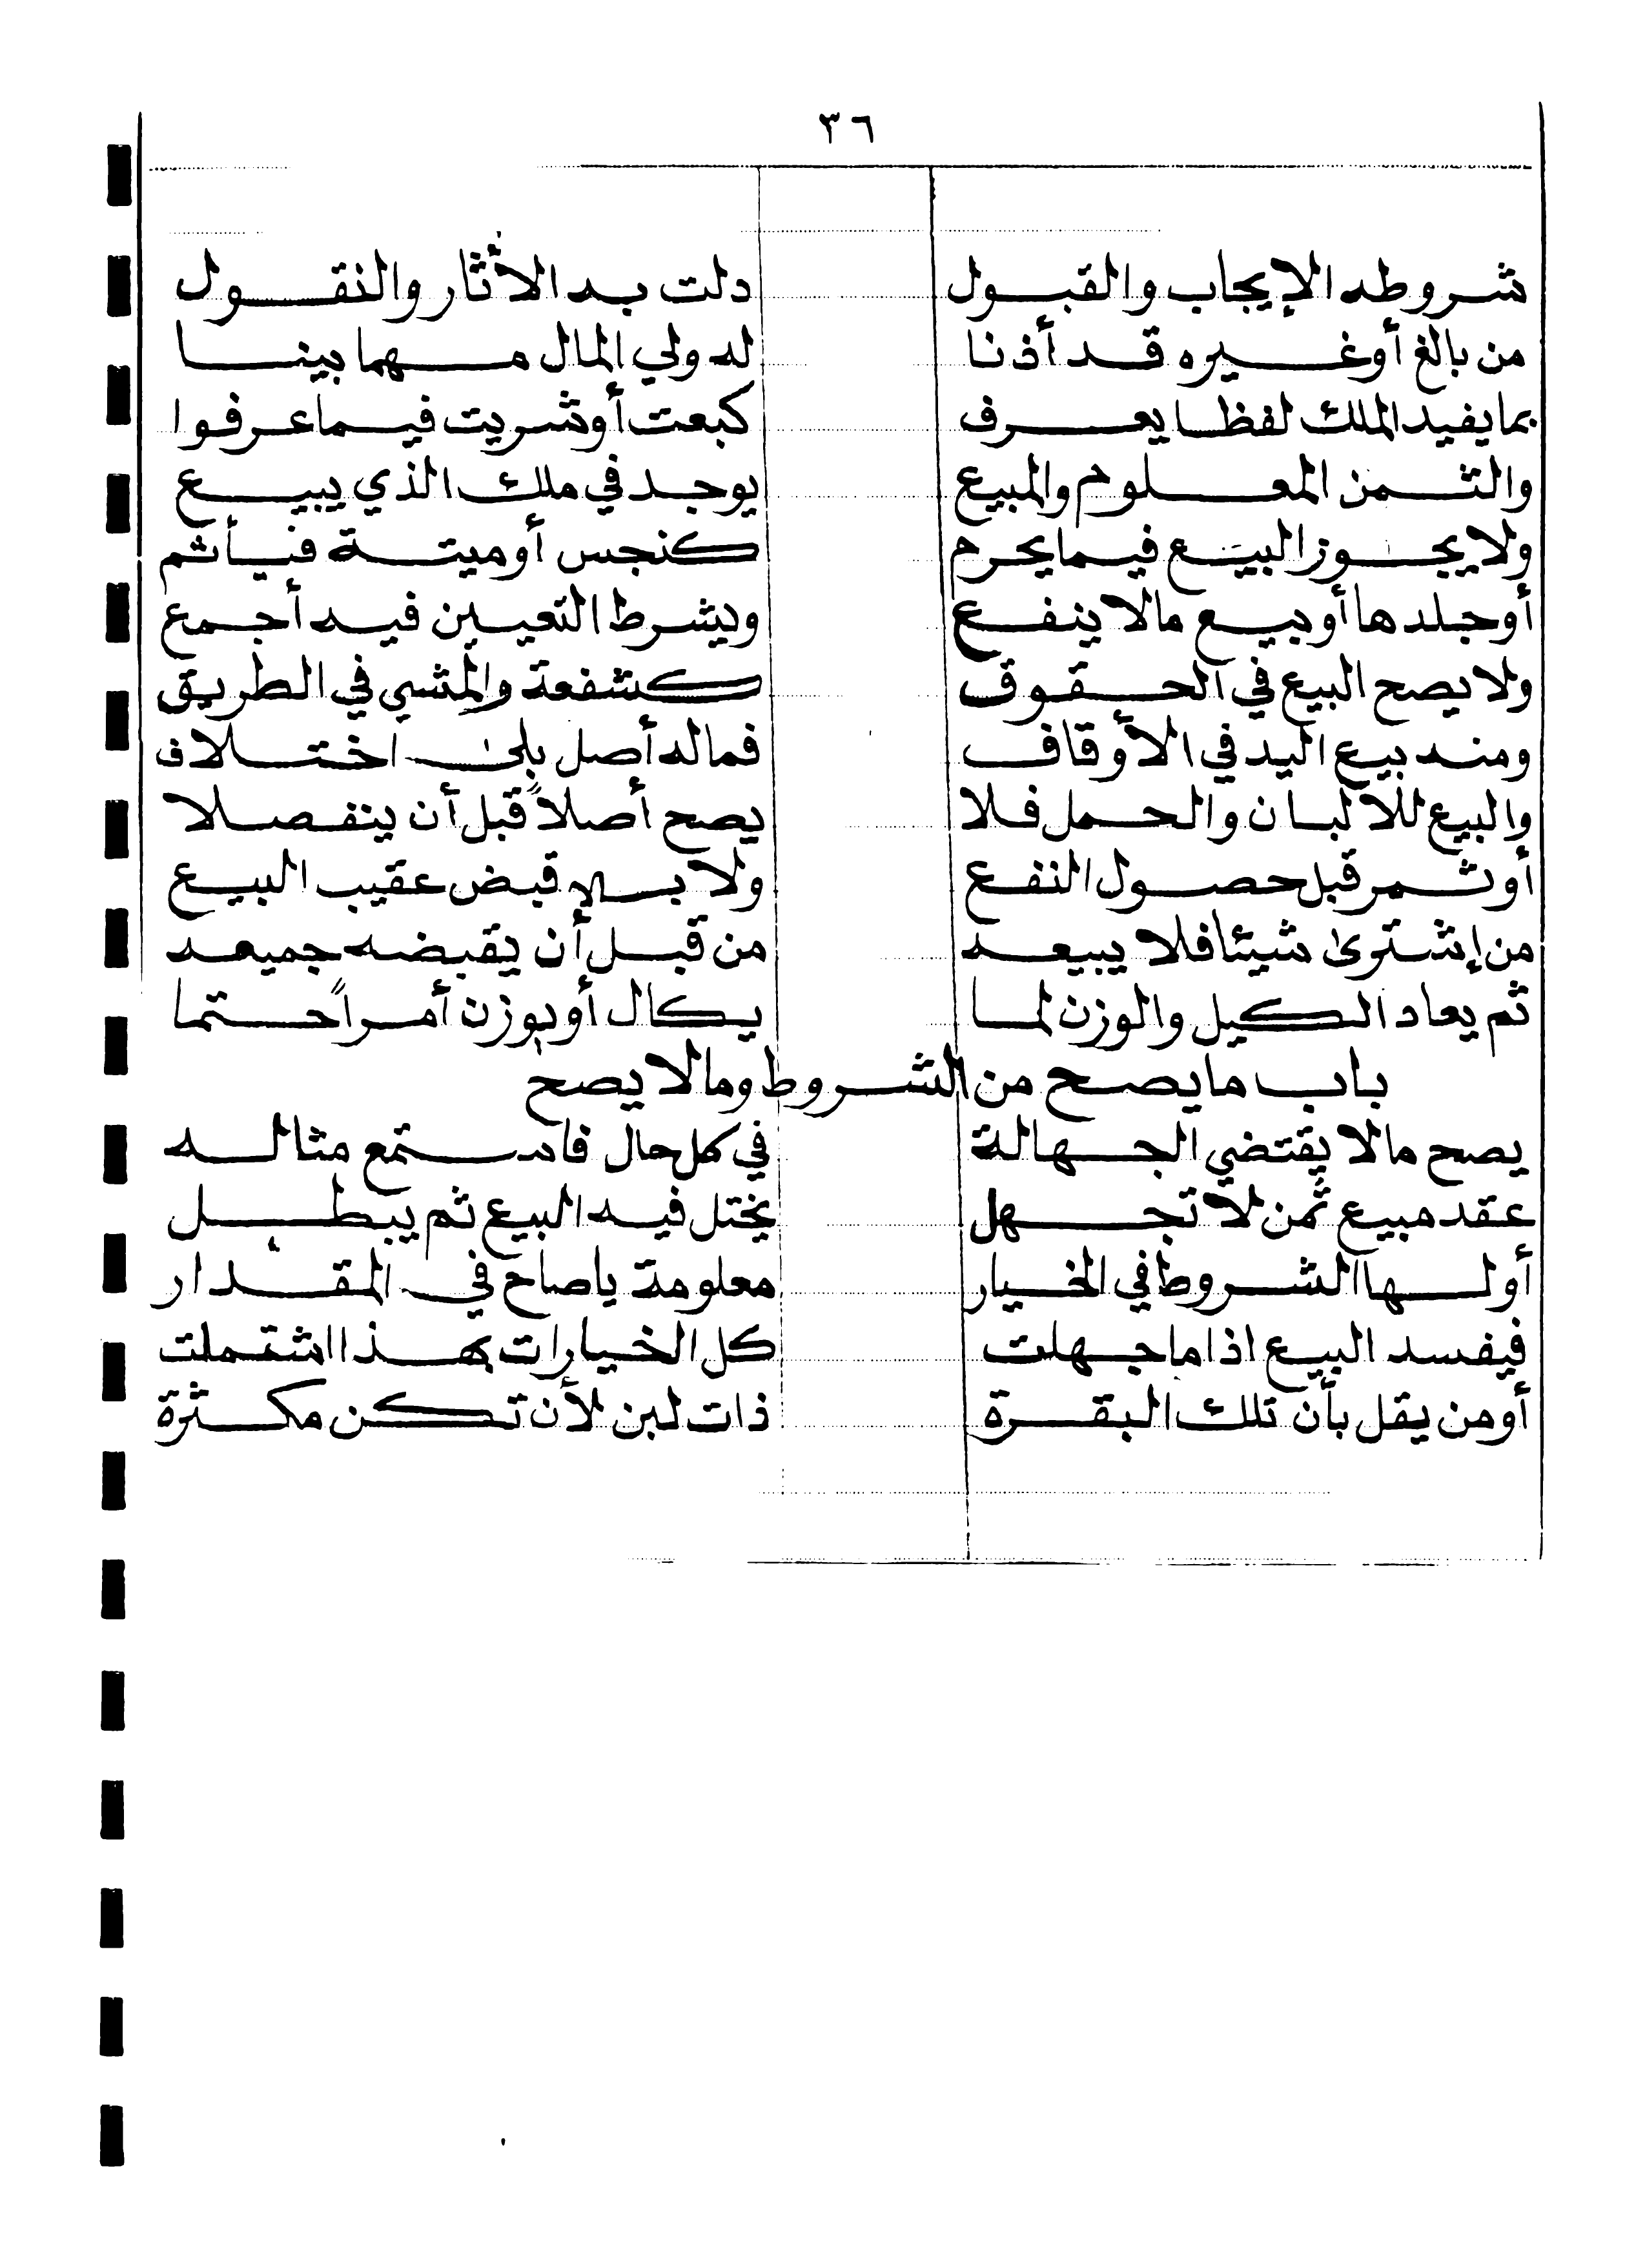 ٣٦
شروطه الإيجاب والقبول دلت به الأثار والنقول
من بالغ أو غيره قد أذنا له ولي المال مهما بينا
بما يفيد الملك لفظا يعرف كبعت أو شريت فيما عرفوا
والثمن المعلوم والمبيع يوجد في ملك الذي يبيع
ولا يجوز البيع فيما يحرم كنجس أو ميتة فيأثم
أو جلدها أو بيع مالا ينفع ويشرط التعيين فيه أجمع
ولا يصح البيع في الحقوق كشفعة والمشي في الطريق
ومنه بيع اليد في الأوقاف فماله أصل بلى اختلاف
والبيع للألبان والحمل فلا يصح أصلاً قبل أن ينفصلا
أو ثمر قبل حصول النفع ولا بلا قبض عقيب البيع
من إشترى شيئا فلا يبيعه من قبل أن يقبضه جميعه
ثم يعاد الكيل والوزن لما يكال أو يوزن أمراً حتما
باب ما يصح من الشروط وما لا يصح
يصح مالا يقتضي الجهالة في كل حال فاستمع مثاله
عقد مبيع ثمن لا تجهل يختل فيه البيع ثم يبطل
أولها الشروط في الخيار معلومة ياصاح في المقدار
فيفسد البيع اذا ما جهلت كل الخيارات بهذا اشتملت
أو من يقل بأن تلك البقرة ذات لبن لأن تكن مكثرة